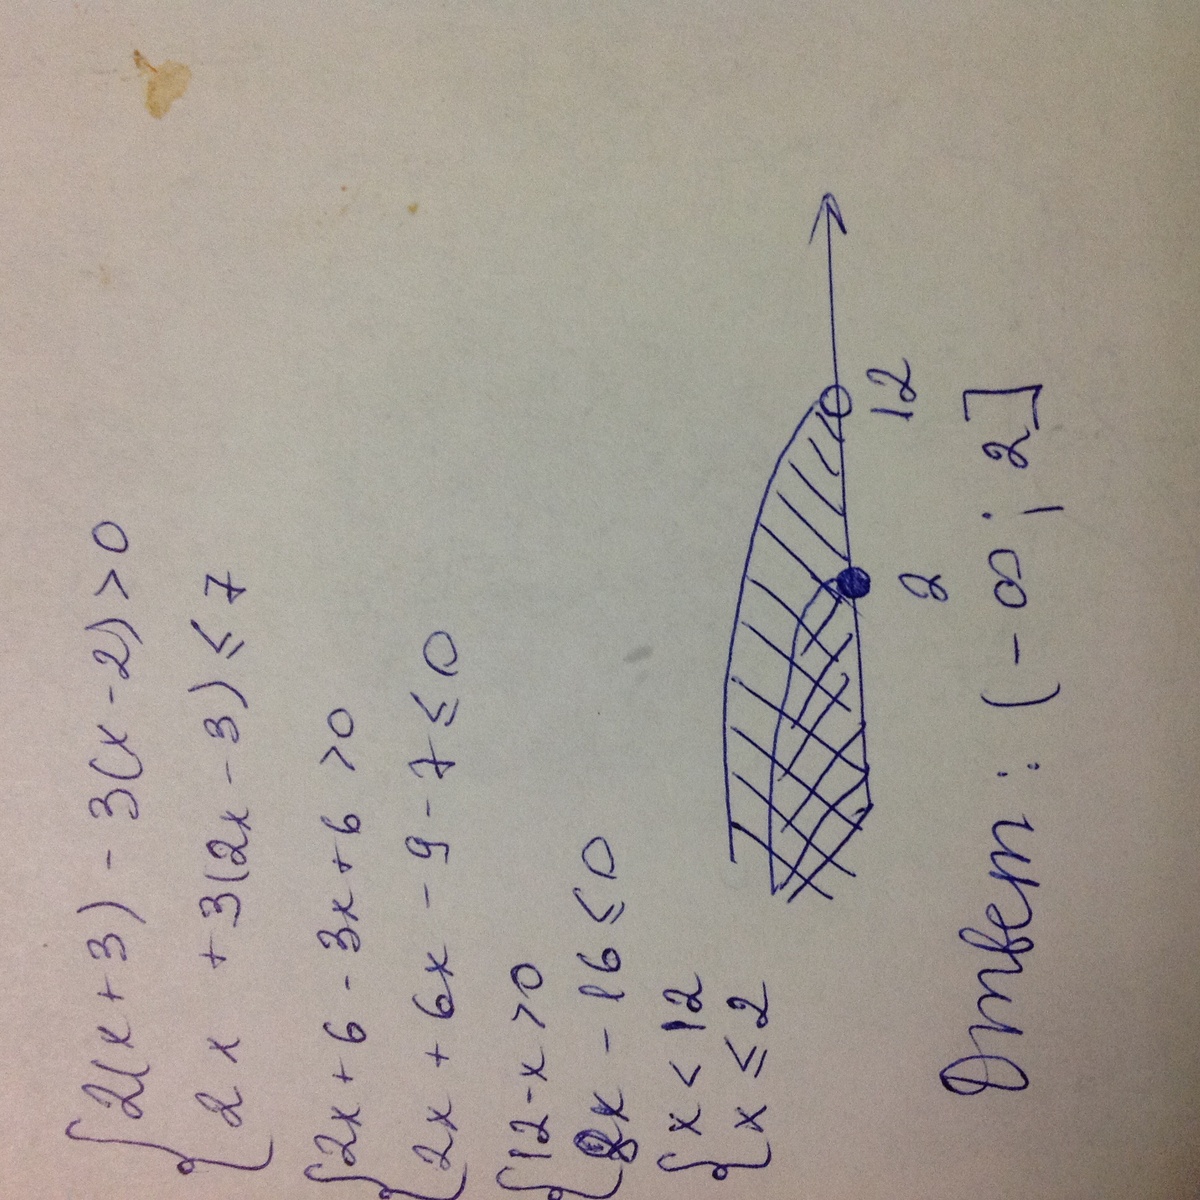 {2(x+3) - 3(x-2) > 0
2x + 3(2x-3) ≤ 7
{2x + 6 - 3x + 6 > 0
2x + 6x - 9 - 7 ≤ 0
{12 - x > 0
8x - 16 ≤ 0
{x < 12
x ≤ 2
2 12
Ответ: (-∞; 2]